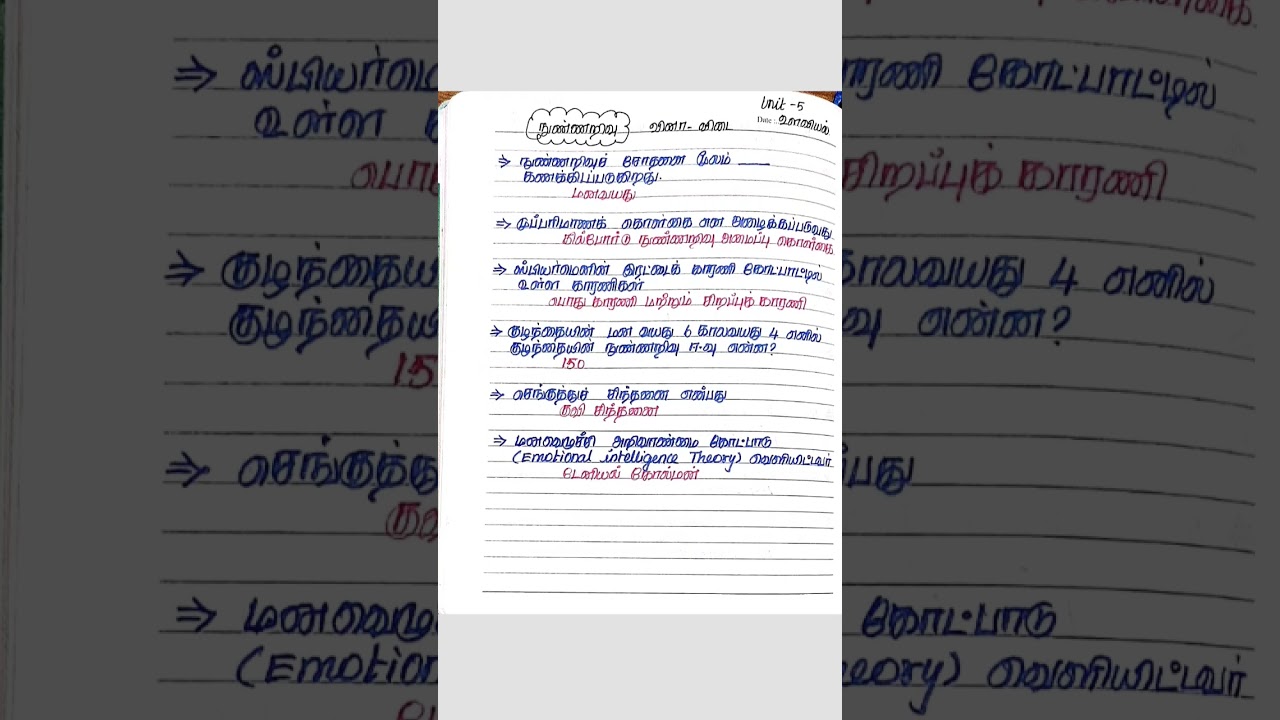 Unit - 5
Date : உளவியல்
நுண்ணறிவு வினா - விடை
⇒ நுண்ணறிவுச் சோதனை மூலம் ____
கணக்கிடப்படுகிறது.
மனவயது
⇒ முப்பரிமாணக் கொள்கை என அழைக்கப்படுவது
கில்போர்டு நுண்ணறிவு அமைப்பு கொள்கை
⇒ ஸ்பியர்மெனின் இரட்டைக் காரணி கோட்பாட்டில்
உள்ள காரணிகள்
பொது காரணி மற்றும் சிறப்புக் காரணி
⇒ குழந்தையின் மன வயது 6 காலவயது 4 எனில்
குழந்தையின் நுண்ணறிவு ஈ.வு என்ன?
150
⇒ செங்குத்துச் சிந்தனை என்பது
குவி சிந்தனை
⇒ மனவெழுச்சி அறிவாண்மை கோட்பாடு
(Emotional intelligence Theory) வெளியிட்டவர்
டேனியல் கோல்மன்